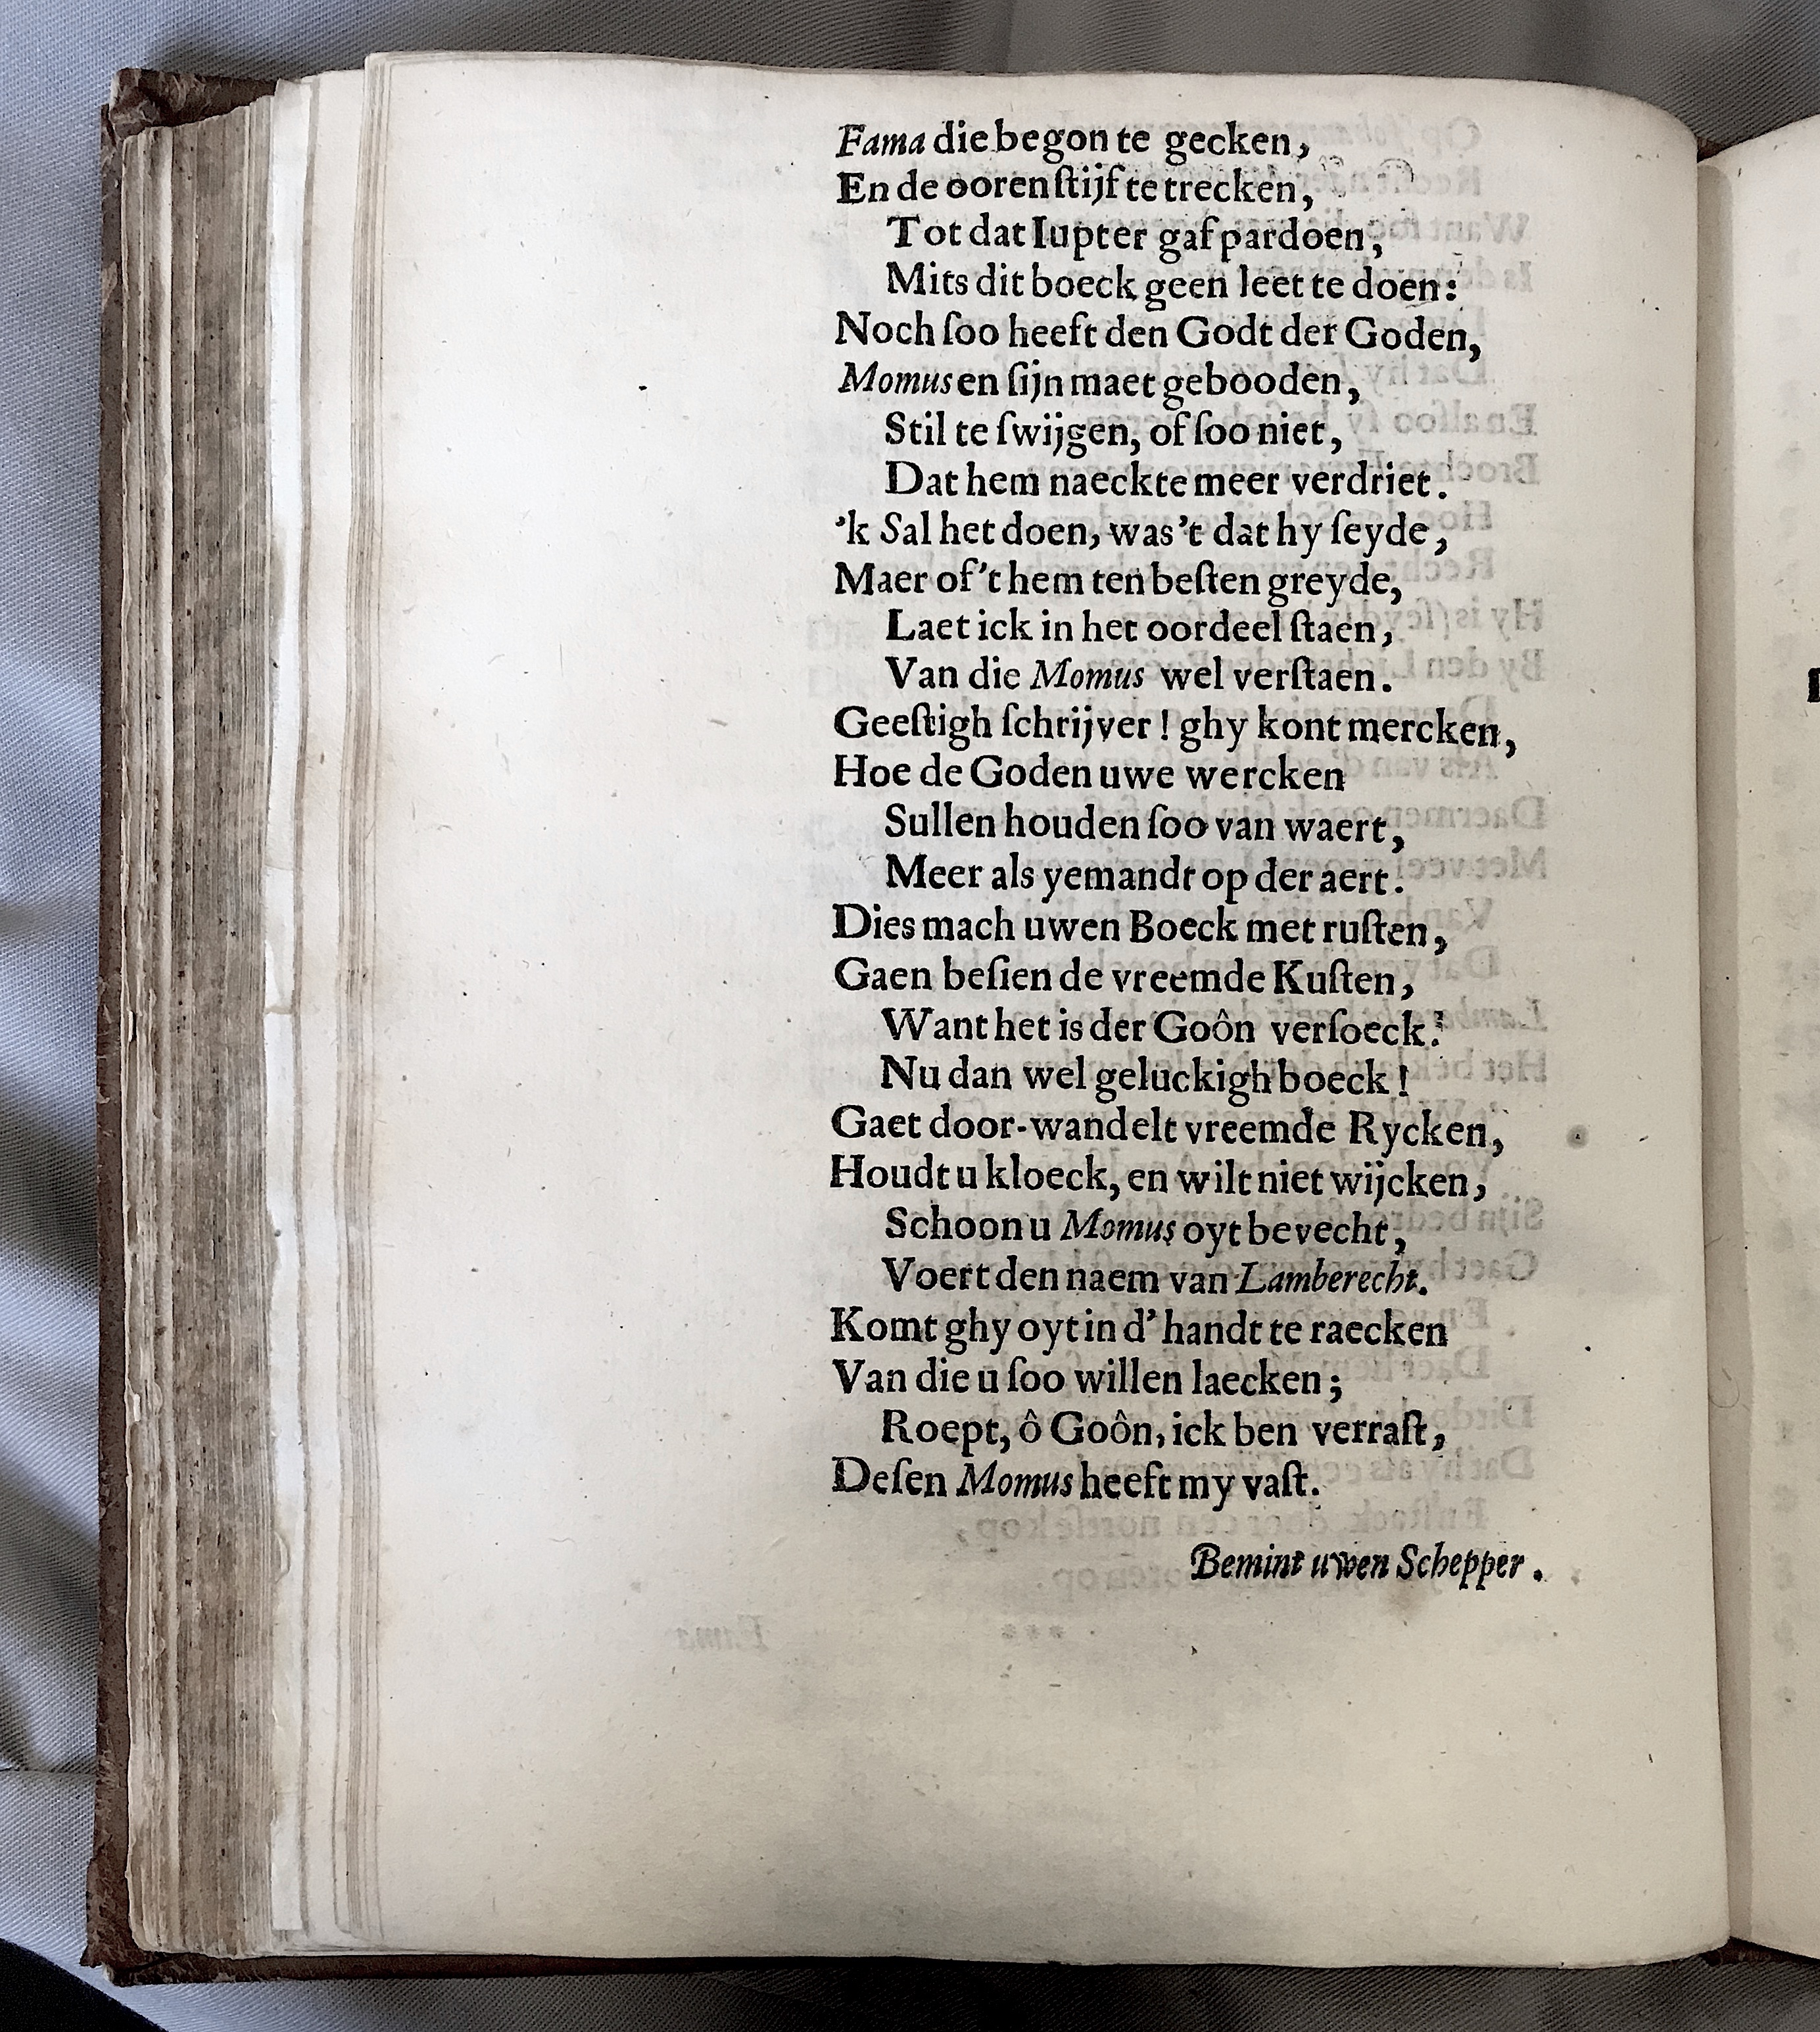 Fama die begon te gecken,
En de ooren ſtijf te trecken,
Tot dat Iupter gaf pardoen,
Mits dit boeck geen leet te doen:
Noch ſoo heeft den Godt der Goden,
Momus en ſijn maet gebooden,
Stil te ſwijgen, of ſoo niet,
Dat hem naeckte meer verdriet.
'k Sal het doen, was't dat hy ſeyde,
Maer of't hem ten beſten greyde,
Laet ick in het oordeel ſtaen,
Van die Momus wel verſtaen.
Geeſtigh ſchrijver! ghy kont mercken,
Hoe de Goden uwe wercken
Sullen houden ſoo van waert,
Meer als yemandt op der aert.
Dies mach uwen Boeck met ruſten,
Gaen beſien de vreemde Kuſten,
Want het is der Goôn verſoeck!
Nu dan wel geluckigh boeck!
Gaet door-wandelt vreemde Rycken,
Houdt u kloeck, en wilt niet wijcken,
Schoon u Momus oyt bevecht,
Voert den naem van Lamberecht.
Komt ghy oyt in d'handt te raecken
Van die u ſoo willen laecken;
Roept, ô Goôn, ick ben verraſt,
Deſen Momus heeft my vaſt.
Bemint uwen Schepper.